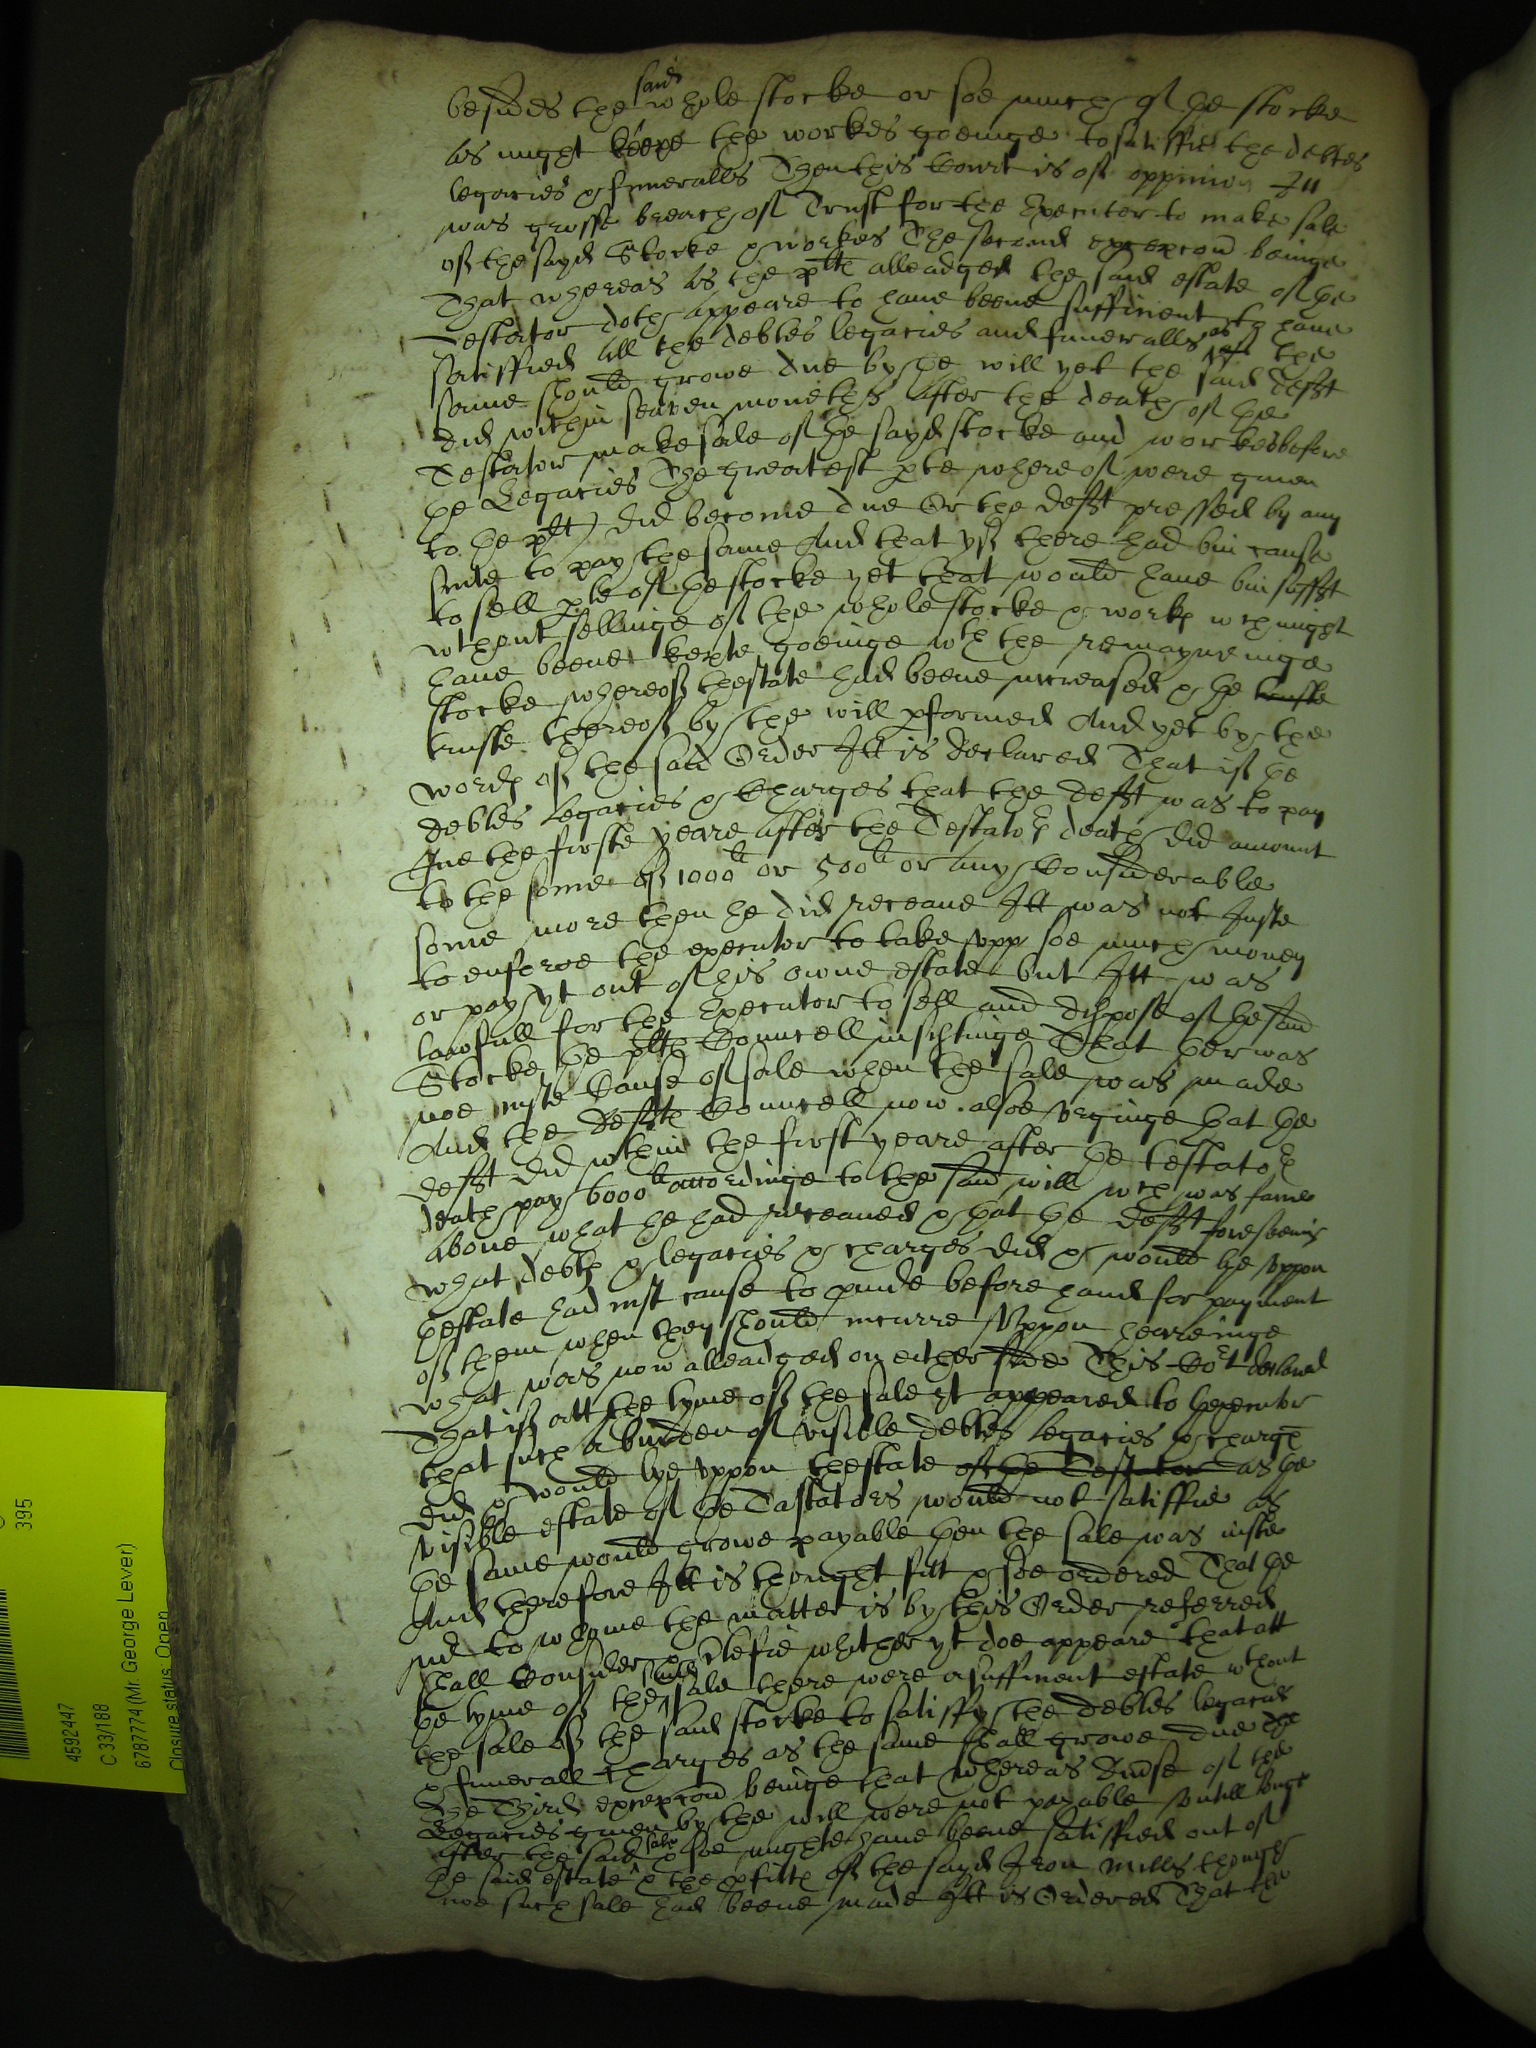 besides the said whole stocke or soe much of the stocke
as might keepe the workes goeinge to satisffie the debtes
legacies & funeralls Then this Court is of oppinion Itt
was grosse breach of Trust for the Executor to make sale
of the sayd Stocke & workes The second excepcon beinge
That whereas as the plts alleadged the said estate of the
Testator doth appeare to have beene sufficient to have
satisffied all the debtes legacies and funeralls as the
same should growe due by the will yet the said deft
did within seaven moneths after the death of the
Testator make sale of the sayd stocke and workes before
the Legacies The greatest pte whereof were given
to the plt) did become due Or the deft pressed by any
suite to pay the same And that yf there had bin cause
to sell pte of the stocke yet that would have bin suffit
wthout sellinge of the whole stocke & works wch might
have beene kepte goeinge wth the remayneinge
stocke whereof thestate had beene increased & the truste
truste thereof by the will pformed And yet by the
words of the said Order Itt is declared That if the
debtes legacies & Charges that the deft was to pay
Ine the firste yeare after the Testators death did amount
to the some of 1000li or 500li or any Considerable
some more then he did receave Itt was not Juste
to enforce the executor to take upp soe much money
or pay yt out of his owne estate but Itt was
lawfull for the Executor to sell and dispose of the said
Stocke the plts Councell insistinge That ther was
noe juste Cause of sale when the sale was made
And the defts Councell now alsoe urginge that the
deft did wthin the first yeare after the testators
death pay 6000li accordinge to the said will wch was farre
above what he had receaved & that the deft foreseeing
what debts & legacies & charges did & would lye uppon
thestate had just cause to pvide before hand for payment
of them when they should incurre Uppon heareinge
what was now alleadged on either side This Cort declared
That if att the tyme of the sale yt appeared to thexecutor
that such a burden of visible debtes legacies & charges
did & would lye uppon thestate of the Testator as the
visible estate of the Tastators would not satisffie as
the same would growe payable then the sale was juste
And therefore Itt is thought fitt & soe ordered That the
to whome the matter is by this Order referred
shall Consider & Certefie whither yt doe appeare that att
the tyme of the said sale there were a sufficient estate wthout
the sale of the said stocke to satisfy the debtes legacies
& funerall charges as the same shall growe due
The Third excepcon beinge that whereas divse of the
Legacies given by the will were not payable untill longe
after the said sale & soe mighte have beene satisffied out of
the said estate & the pfitts of the sayd Iron Mills though
noe such sale had beene made Itt is Ordered That the
395
4592447
C 33/188
6787774 (Mr. George Lever)
Closure status: Open